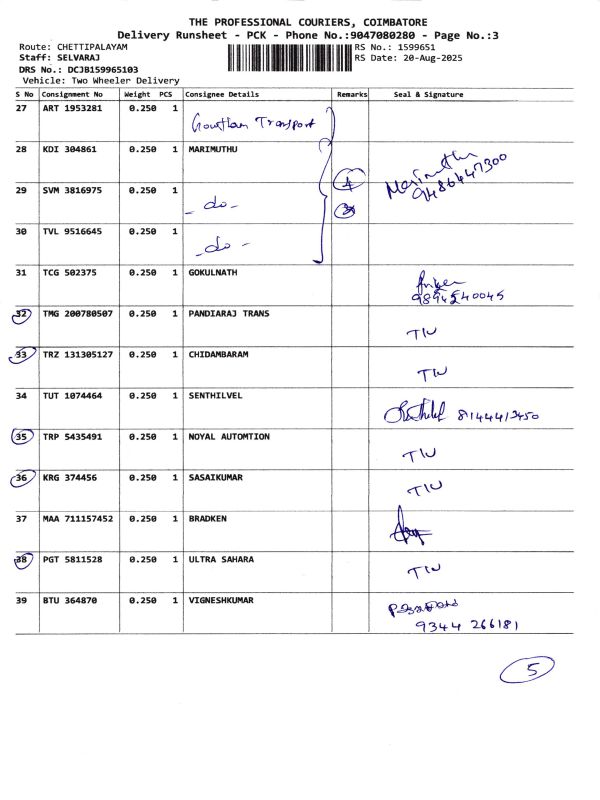 THE PROFESSIONAL COURIERS, COIMBATORE
Delivery Runsheet - PCK - Phone No.:9047080280 - Page No.:3
Route: CHETTIPALAYAM RS No.: 1599651
Staff: SELVARAJ RS Date: 20-Aug-2025
DRS No.: DCJB159965103
Vehicle: Two Wheeler Delivery
S No Consignment No Weight PCS Consignee Details Remarks Seal & Signature
27 ART 1953281 0.250 1 Gowtham Transport
28 KDI 304861 0.250 1 MARIMUTHU Marimuthu
9486447300
29 SVM 3816975 0.250 1 - do -
30 TVL 9516645 0.250 1 - do -
31 TCG 502375 0.250 1 GOKULNATH
9894540045
32 TMG 200780507 0.250 1 PANDIARAJ TRANS TIU
33 TRZ 131305127 0.250 1 CHIDAMBARAM TIU
34 TUT 1074464 0.250 1 SENTHILVEL 8144413450
35 TRP 5435491 0.250 1 NOYAL AUTOMTION TIU
36 KRG 374456 0.250 1 SASAIKUMAR TIU
37 MAA 711157452 0.250 1 BRADKEN
38 PGT 5811528 0.250 1 ULTRA SAHARA TIU
39 BTU 364870 0.250 1 VIGNESHKUMAR
9344 266181
5